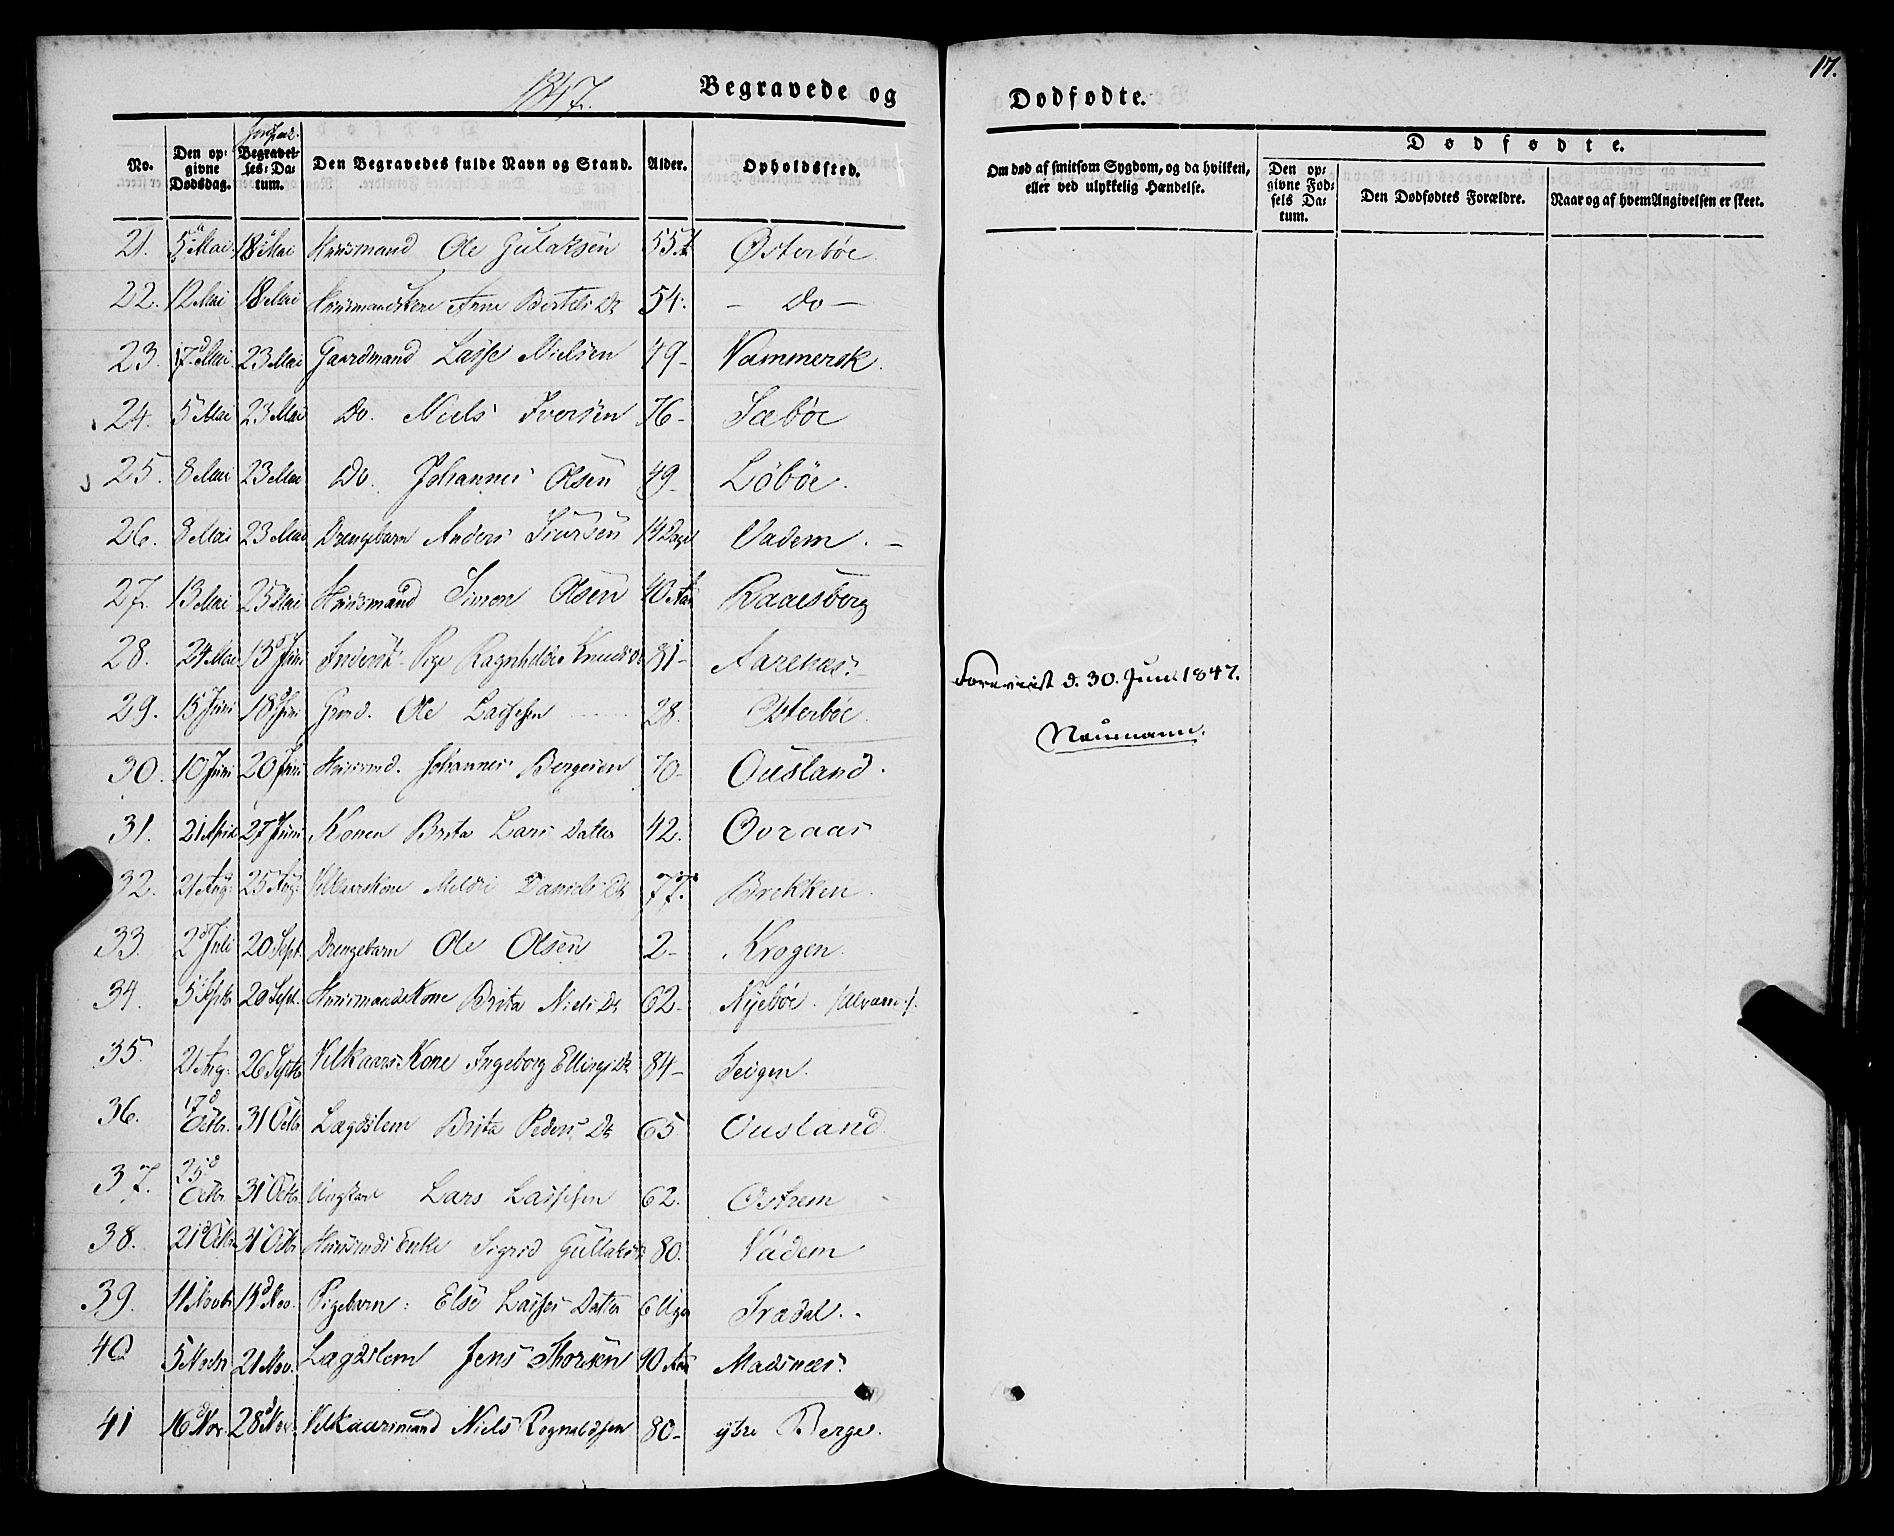 1847.
Begravede og
Dødfødte.
17.
No.
Den opgivne Dødsdag.
Begravelses-Datum.
Den Begravedes fulde Navn og Stand.
Alder.
Opholdssted.
Om død af smitsom Sygdom, og da hvilken, eller ved ulykkelig Hændelse.
Dødfødte.
Den opgivne Fødsels Datum.
Den Dødfødtes Forældre.
Naar og af hvem Angivelsen er skeet.
21. 5 Mai 18 Mai Huusmand Ole Gulaksen 55 Østerbøe.
22. 12 Mai 18 Mai Huusmandskone Anne Bertels Dr 54. – do –
23. 17 Mai 23 Mai Gaardmand Lasse Nielsen 49 – Vammersk.
24. 5 Mai 23 Mai Do. Niels Iversen 76 – Sæbøe
25. 8 Mai 23 Mai Do. Johannes Olsen 49 – Løbøe.
26. 8 Mai 23 Mai Drengebarn Anders Siursen 14 Dage Vadem. –
27. 13 Mai 25 Mai Huusmand Simon Olsen 40 Aar Raaesberg
28. 24 Mai 13 Juni Inderst. Pige Ragnhilde Knuds Dr 81 – Aarenæs.
29. 15 Juni 18 Juni Grmd. Ole Lassesen 28. Østerbøe.
30. 10 Juni 20 Juni Huusmd. Johannes Bergesen 70 – Ousland.
31. 21 April 27 Juni Konen Brita Lars Datter 42. Ovraas
32. 21 Aug. 25 Aug. Vilkaarskone Meldri Daniels Dr 77. Brekken.
33. 2 Juli 20 Sept. Drengebarn Ole Olsen 2 – Krogen.
34. 5 Septb 20 Sept. Huusmandskone Brita Niels Dr 62 – Nyebøe. /Alvam./.
35. 21 Aug. 26 Septb Vilkaars Kone Ingeborg Ellings Dr 84 – Teigen.
36. 17 Octbr. 31 Octbr Lægdslem Brita Peders Dr 65 Ousland
37. 25 Octbr. 31 Octbr Ungkarl Lars Lassesen 62. Ostrem
38. 21 Octbr 31 Octbr Huusmds Enke Sigrid Gullaks Dr 80. Vadem
39. 11 Novbr 15 Nov. Pigebarn: Else Lasses Datter 6 Uger Tradal.
40 5 Novbr 21 Nov. Lægdslem Jens Thorsen 90 Aar Madsnæs.
41 16 Nov. 28 Nov. Vilkaarsmand Niels Rognaldsen 80 – ytre Berge.
Foreviist d. 30 Juni 1847.
Neumann.